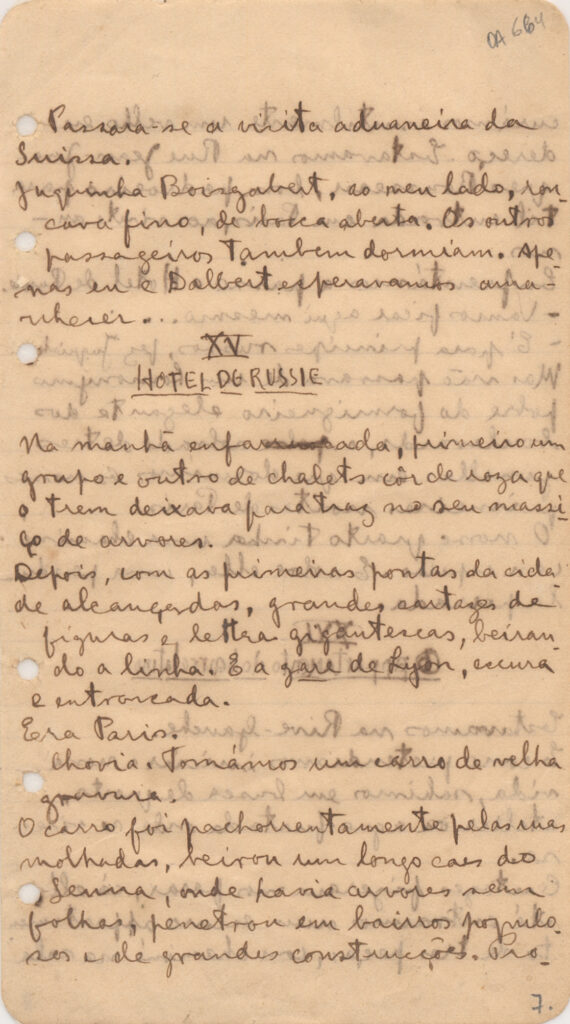 OA 664
Passara-se a visita aduaneira da
Suissa.
Juquinha Boisgobert, ao meu lado, ron-
cava fino, de bocca aberta. Os outros
passageiros tambem dormiam. Ape-
nas eu e Dalbert esperavamos ama-
nhecer...
XV
HOTEL DE RUSSIE
Na manhã enfarruscada, primeiro um
grupo e outro de chalets côr de roza que
o trem deixava para traz no seu massi-
ço de arvores.
Depois, com as primeiras pontas da cida-
de alcançadas, grandes cartazes de
figuras e lettra gigantescas, beiran-
do a linha. E a gare de Lyon, escura
e entroncada.
Era Paris.
Chovia. Tomámos um carro de velha
gravura.
O carro foi pachorrentamente pelas ruas
molhadas, beirou um longo caes do
Senna, onde havia arvores sem
folhas, penetrou em bairros populo-
sos e de grandes construcções. Pro-
7.